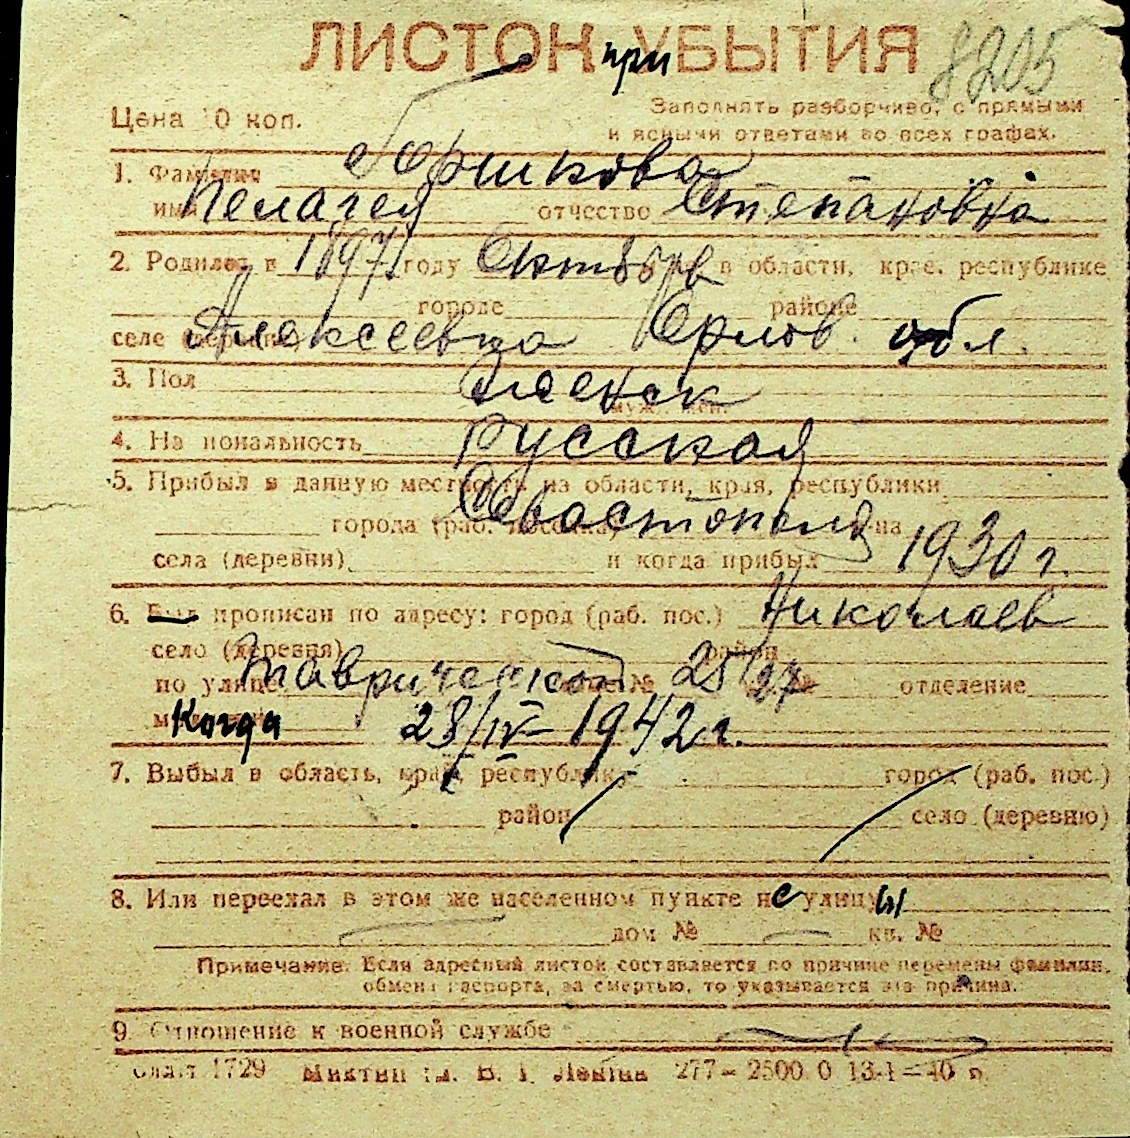 ЛИСТОК при УБЫТИЯ
8205
Цена 10 коп.
Заполнять разборчиво, с прямыми
и ясными ответами во всех графах.
1. Фамилия Горшкова
имя Пелагея отчество Степановна
2. Родился в 1897 году Октябрь в области, крае, республике
городе районе
селе (деревне) Алексеевца Орлов. обл.
3. Пол женск
муж. жен.
4. Национальность русская
5. Прибыл в данную местность из области, края, республики
города (раб. поселка) Севастополя на
села (деревни) и когда прибыл 1930 г.
6. Был прописан по адресу: город (раб. пос.) Николаев
село (деревня) район
по улице Таврической № 25/27 отделение
Когда 28/IV-1942 г.
7. Выбыл в область, край, республику город (раб. пос.)
район село (деревню)
8. Или переехал в этом же населенном пункте не улицы
дом № кв. №
Примечание: Если адресный листок составляется по причине перемены фамилии,
обмена паспорта, за смертью, то указывается эта причина.
9. Отношение к военной службе
1729 им. В. И. Ленина 277-2500.0 13-I-40 г.